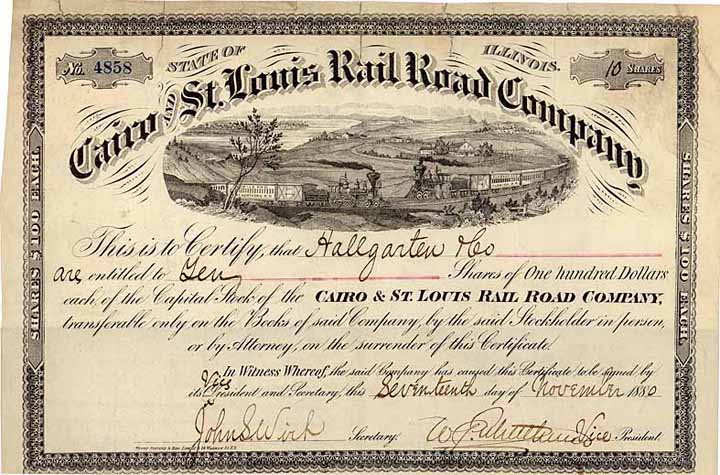 No. 4858
STATE OF ILLINOIS.
10 SHARES
Cairo AND St. Louis Rail Road Company,
SHARES $100 EACH.
SHARES $100 EACH.
This is to Certify, that Hallgarten & Co
are entitled to Ten Shares of One hundred Dollars
each of the Capital Stock of the CAIRO & ST. LOUIS RAIL ROAD COMPANY,
transferable only on the Books of said Company, by the said Stockholder in person,
or by Attorney, on the surrender of this Certificate.
In Witness Whereof, the said Company has caused this Certificate to be signed by
its Vice President and Secretary, this Seventeenth day of November 1880
John S. Wirk Secretary. Vice President.